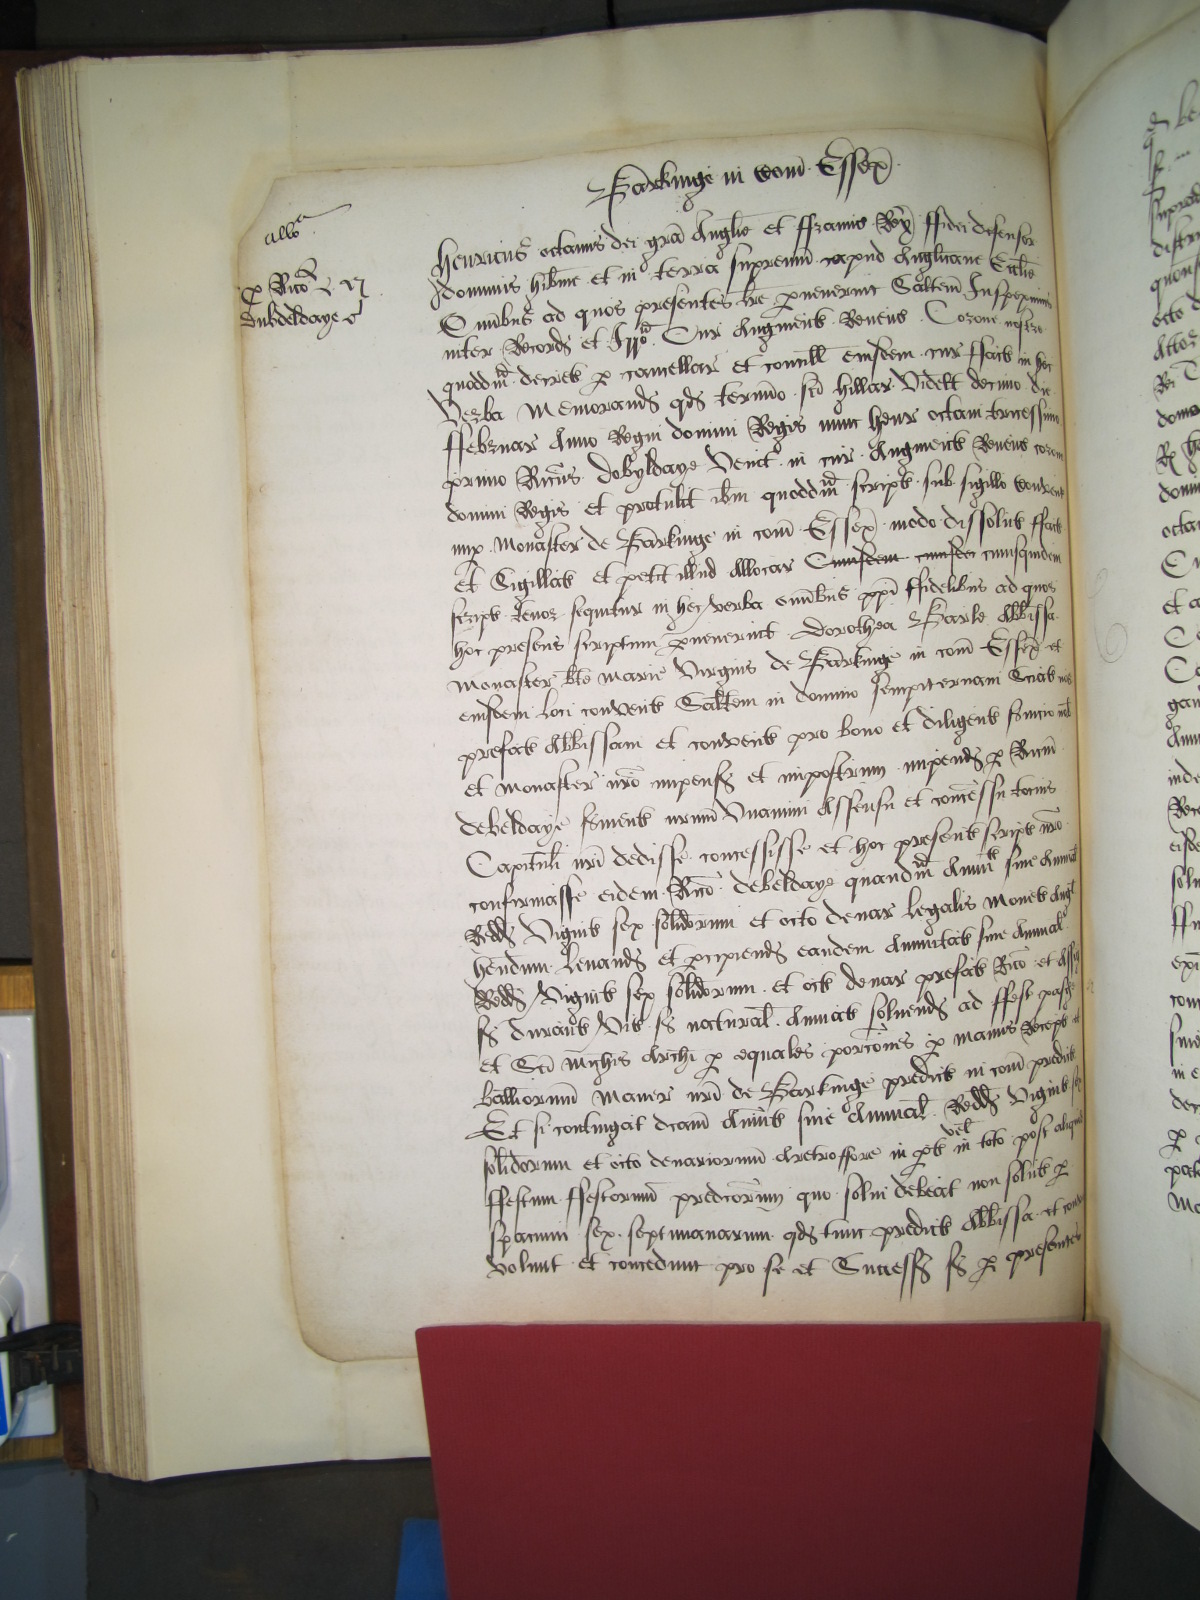 Barkinge in Com Essex
allo
p Rico
Dubdeldaye
Henricus octavus dei gra Anglie et ffrancie Rex ffidei defensor
dominus hibnie et in terra supremu capud Anglicane Ecclie
Omibus ad quos presentes lre pvenerint Saltem Inspeximus
inter Records et Cur Augment Revenc Corone nostre
quoddm decret p cancellar et concill eiusdem cur ffact in hec
Verba Memorand qd termino sci hillar Videlt decimo die
ffebruar Anno Regni domini Regis nunc henr octavi tricessimo
primo Ricus Dobyldaye Venit in cur Augment Revenc coram
domini Regis et protulit ibm quoddm script sub sigillo convent
nup Monaster de Barkinge in com Essex modo dissolut ffact
et Sigillat et petit illud allocar Cuiusdem cuiusdem cuiusquidem
script tenor sequitur in hec verba omibus xpi ffidelibus ad quos
hoc presens scriptum pvenerint Dorothea Barle Abbissa
Monaster bte Marie Virginis de Barkinge in com Essex et
eiusdem loci convent Saltem in domino sempiternam Sciat nos
prefat Abbissam et convent pro bono et diligent svicio nob
et monaster nro impens et impostrum impend p Ricm
debeldaye svient nrum Vnanimi Assensu et concessu tocius
Capituli nri dedisse concessisse et hoc present script nro
confirmasse eidem Rico debeldaye quandm Annuit sive Annual
Redd Vigint sex solidorum et octo denar legalis monet Angl
hendum Levand et pcipiend eandem Annuitat sive Annual
Redd Vigint sex solidorum et oct denar prefat Rico et Assig
s durant Vit s natural Annuat solvend ad ffest pasche
et Sci Michis Archi p equales porcones p manus Recept et
ballivorum Maner nri de Barkinge predict in com predict
Et si contingat dcam Annuit sive Annual Redd Vigint sex
solidorum et octo denariorum Aretro ffore in pte vel in toto post aliquod
ffestum ffestorum predcorum quo solvi debeat non solut p
spacium sex septimanarum qd tunc predict Abbissa et convent
volunt et concedunt pro se et Success s p presentes